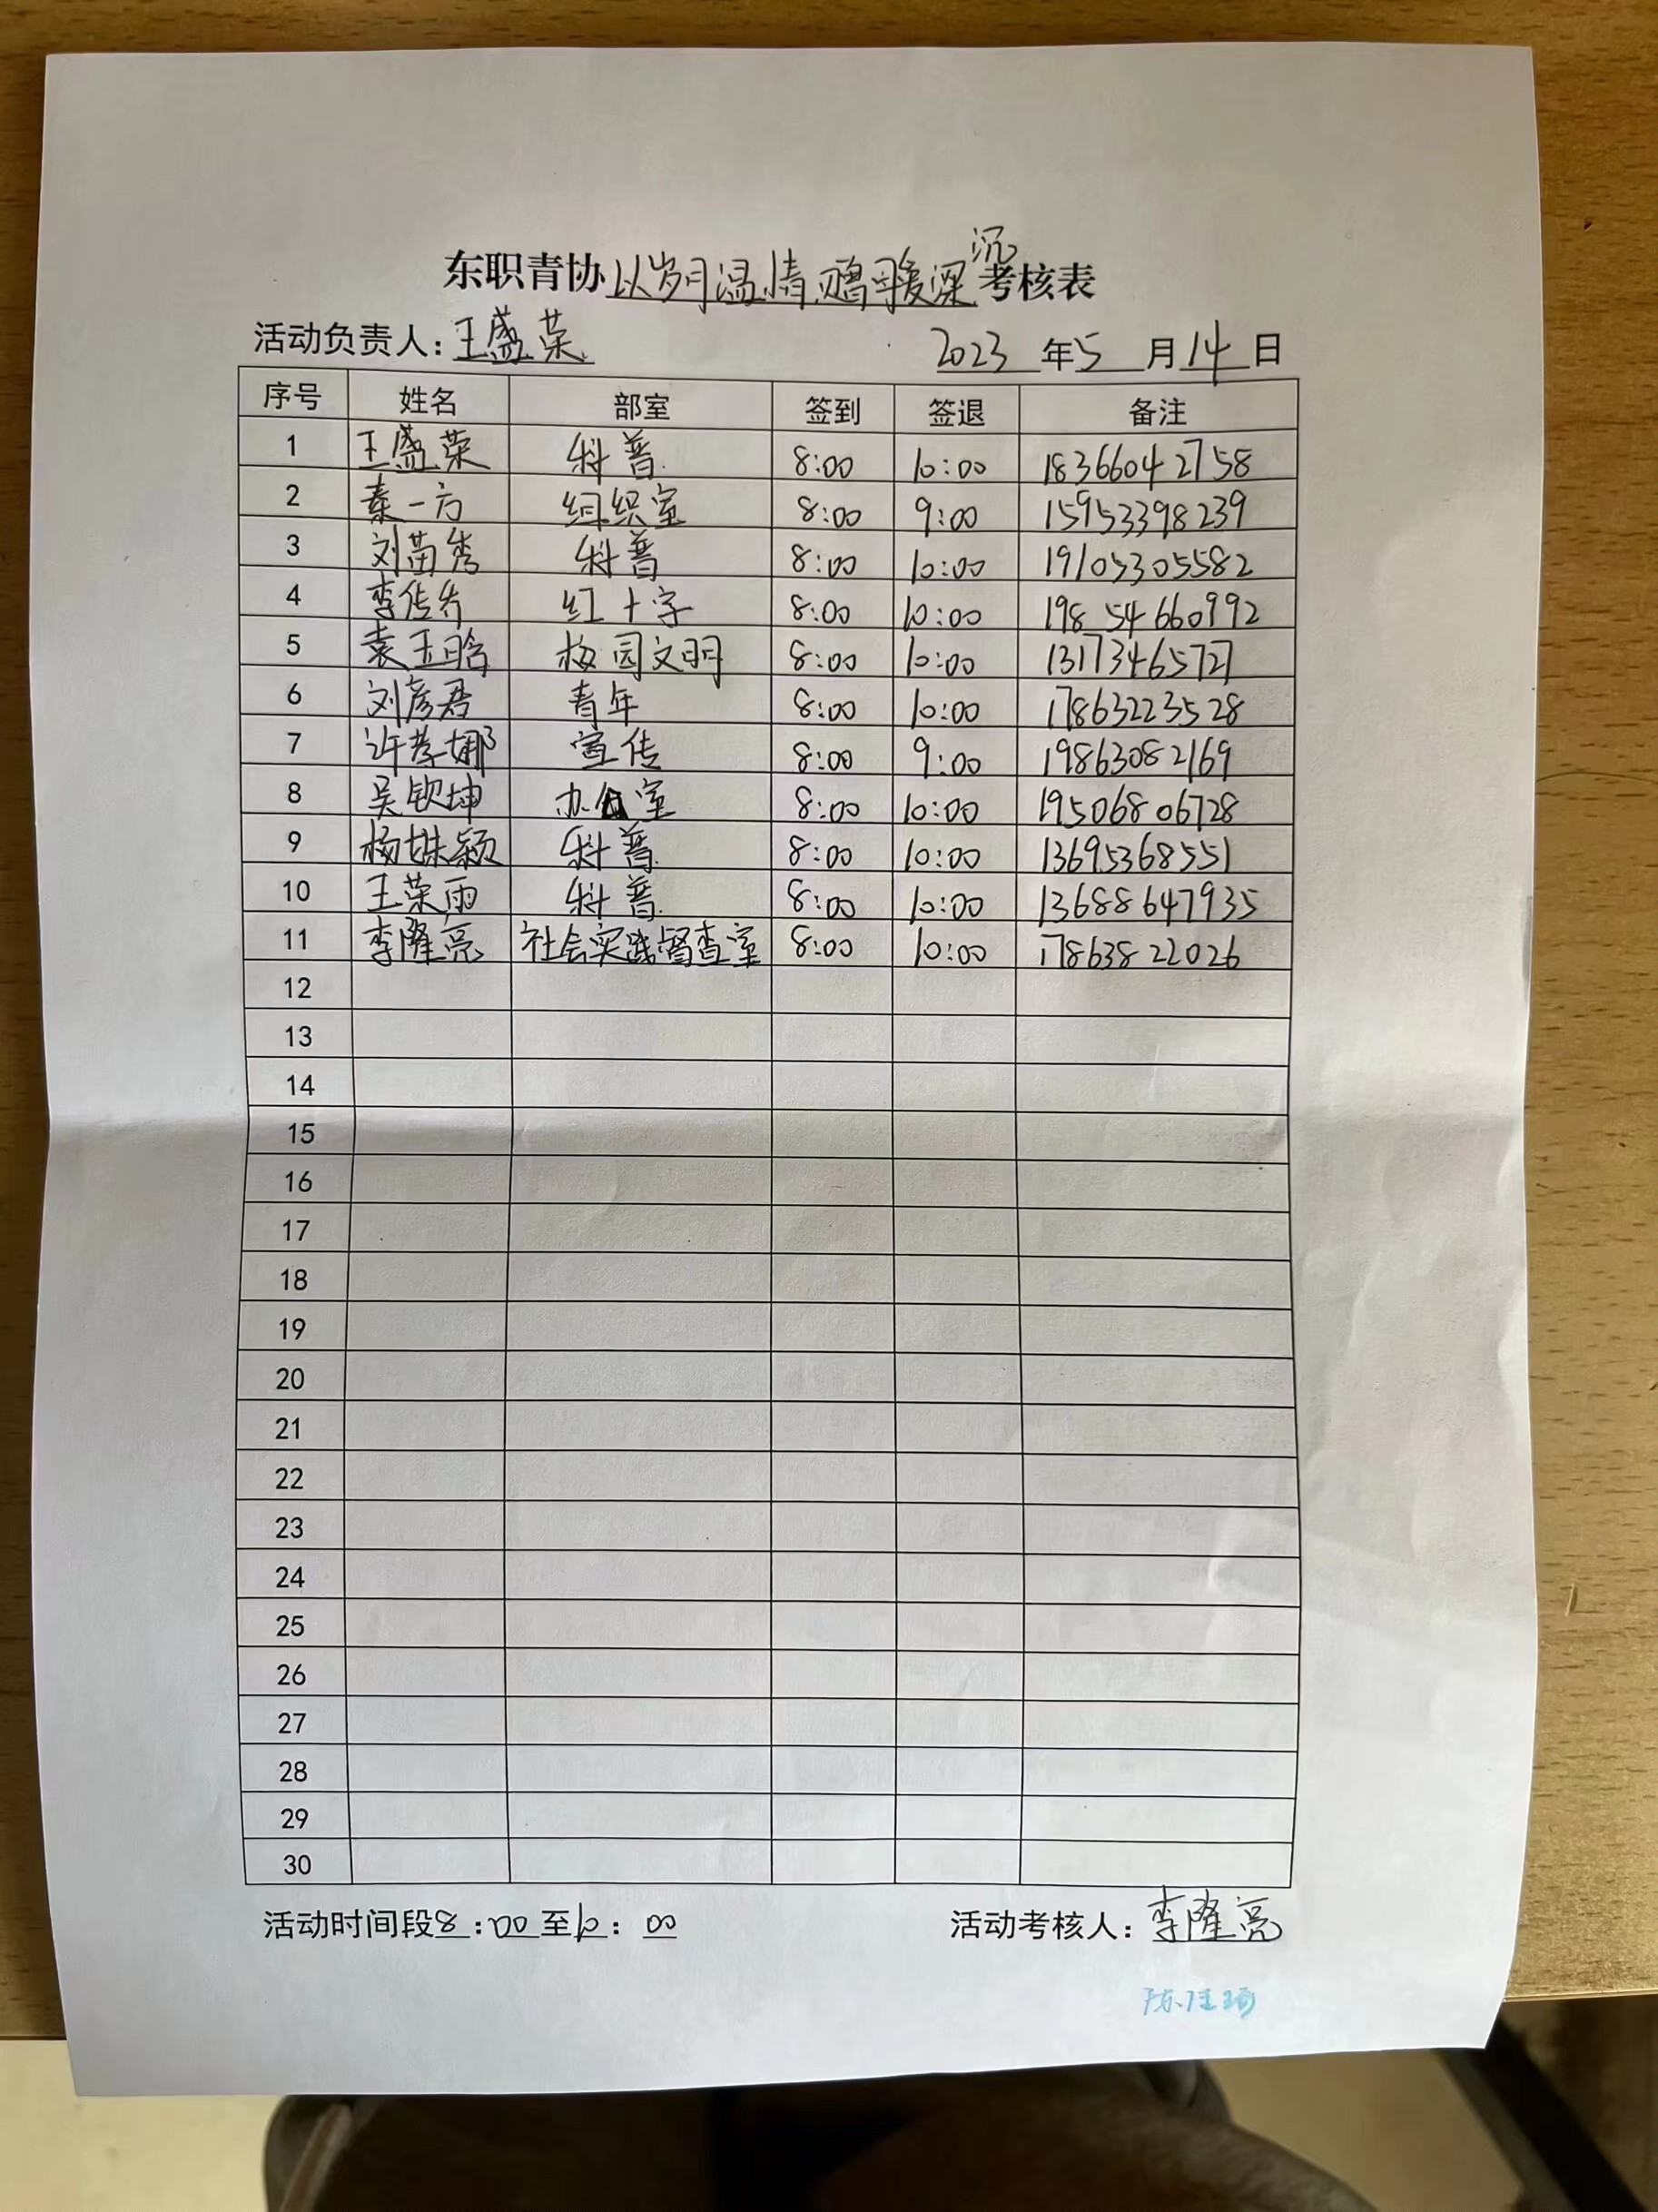 沉
东职青协以岁月温情,赠母爱深考核表
活动负责人:王盛荣
2023 年5 月14日
序号 姓名 部室 签到 签退 备注
1 王盛荣 科普 8:00 10:00 18366042758
2 秦一方 组织室 8:00 9:00 15953398239
3 刘苗秀 科普 8:00 10:00 19105305582
4 李传 红十字 8:00 10:00 19854660992
5 袁玉晗 校园文明 8:00 10:00 13173465727
6 刘彦君 青年 8:00 10:00 17863223528
7 许孝娜 宣传 8:00 9:00 19863082169
8 吴钦坤 办公室 8:00 10:00 19506806728
9 杨姝颖 科普 8:00 10:00 13695368551
10 王荣雨 科普 8:00 10:00 13688647935
11 李隆亮 社会实践督查室 8:00 10:00 17863822026
12
13
14
15
16
17
18
19
20
21
22
23
24
25
26
27
28
29
30
活动时间段8:00至10:00
活动考核人:李隆亮